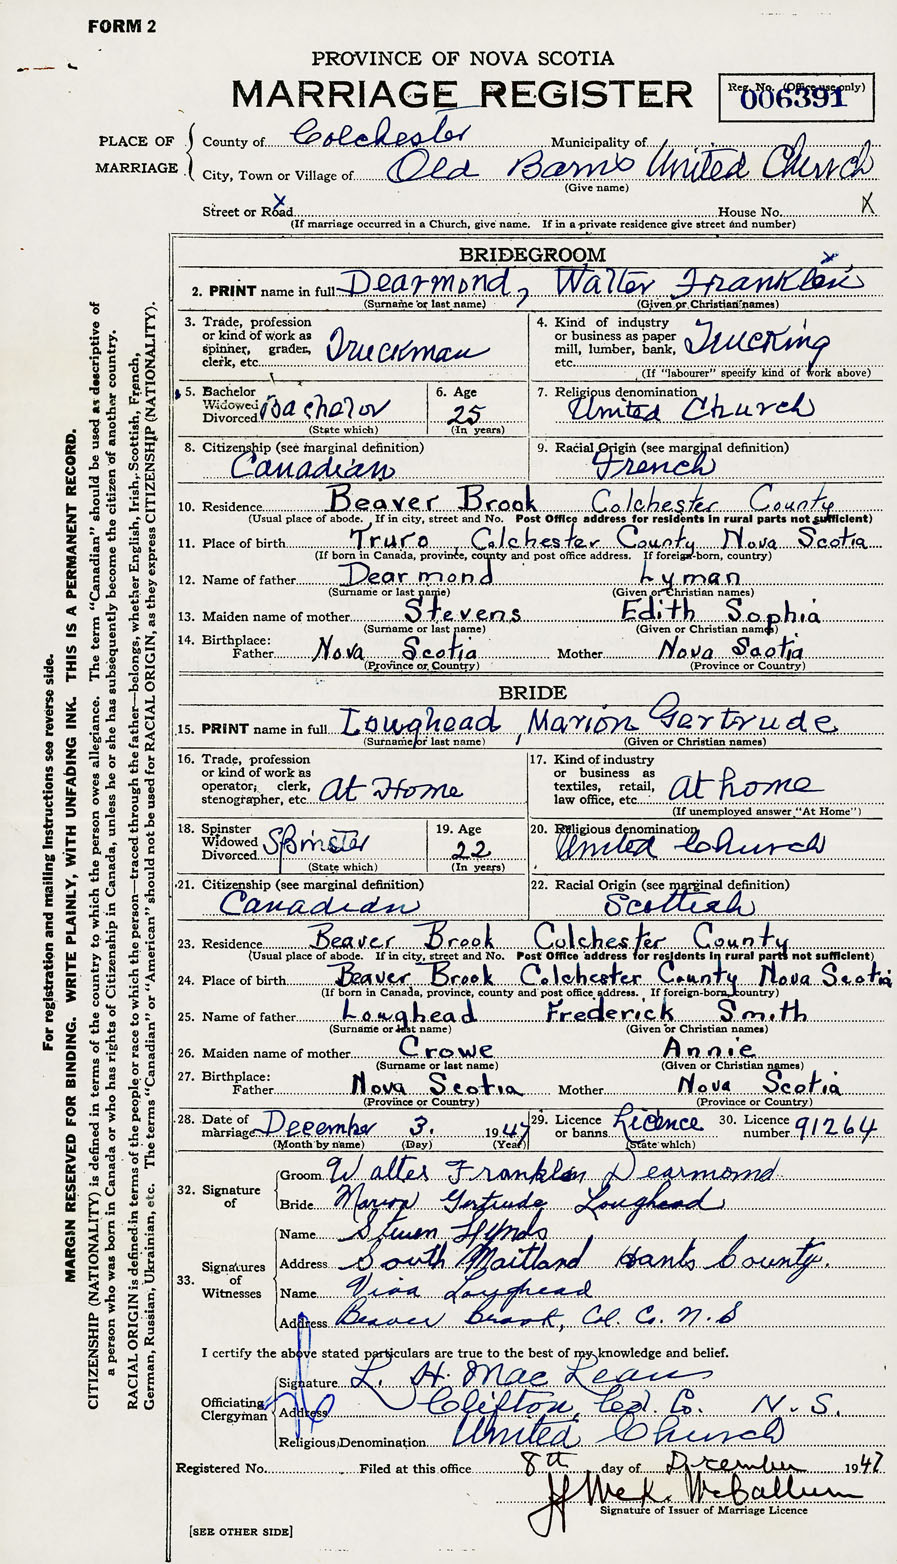 FORM 2
PROVINCE OF NOVA SCOTIA
MARRIAGE REGISTER
Reg. No. (Office use only)
006391
PLACE OF MARRIAGE
County of Colchester Municipality of
City, Town or Village of Old Barns United Church
(Give name)
Street or Road X House No. X
(If marriage occurred in a Church, give name. If in a private residence give street and number)
BRIDEGROOM
2. PRINT name in full Dearmond, Walter Franklin
(Surname or last name) (Given or Christian names)
3. Trade, profession or kind of work as spinner, grader, clerk, etc. Truckman
4. Kind of industry or business as paper mill, lumber, bank, etc. Trucking
(If "labourer" specify kind of work above)
5. Bachelor Widowed Divorced Bachelor
(State which)
6. Age 25
(In years)
7. Religious denomination United Church
8. Citizenship (see marginal definition) Canadian
9. Racial Origin (see marginal definition) French
10. Residence Beaver Brook Colchester County
(Usual place of abode. If in city, street and No. Post Office address for residents in rural parts not sufficient)
11. Place of birth Truro, Colchester County Nova Scotia
(If born in Canada, province, county and post office address. If foreign-born, country)
12. Name of father Dearmond Lyman
(Surname or last name) (Given or Christian names)
13. Maiden name of mother Stevens Edith Sophia
(Surname or last name) (Given or Christian names)
14. Birthplace: Father Nova Scotia Mother Nova Scotia
(Province or Country) (Province or Country)
BRIDE
15. PRINT name in full Loughead, Marion Gertrude
(Surname or last name) (Given or Christian names)
16. Trade, profession or kind of work as operator, clerk, stenographer, etc. At Home
17. Kind of industry or business as textiles, retail, law office, etc. At home
(If unemployed answer "At Home")
18. Spinster Widowed Divorced Spinster
(State which)
19. Age 22
(In years)
20. Religious denomination United Church
21. Citizenship (see marginal definition) Canadian
22. Racial Origin (see marginal definition) Scottish
23. Residence Beaver Brook Colchester County
(Usual place of abode. If in city, street and No. Post Office address for residents in rural parts not sufficient)
24. Place of birth Beaver Brook Colchester County Nova Scotia
(If born in Canada, province, county and post office address. If foreign-born, country)
25. Name of father Loughead Frederick Smith
(Surname or last name) (Given or Christian names)
26. Maiden name of mother Crowe Annie
(Surname or last name) (Given or Christian names)
27. Birthplace: Father Nova Scotia Mother Nova Scotia
(Province or Country) (Province or Country)
28. Date of marriage December 3. 1947
(Month by name) (Day) (Year)
29. Licence or banns Licence
(State which)
30. Licence number 91264
32. Signature of
Groom Walter Franklin Dearmond
Bride Marion Gertrude Loughead
33. Signatures of Witnesses
Name Hynds
Address South Maitland Hants County.
Name Loughead
Address Beaver Brook, Col. Co. N.S
I certify the above stated particulars are true to the best of my knowledge and belief.
Officiating Clergyman
Signature L. H. MacLean
Address Clifton, Col. Co. N.S.
Religious Denomination United Church
Registered No. Filed at this office 8th day of December 1947
McK. McCallum
Signature of Issuer of Marriage Licence
[SEE OTHER SIDE]
For registration and mailing instructions see reverse side.
MARGIN RESERVED FOR BINDING. WRITE PLAINLY, WITH UNFADING INK. THIS IS A PERMANENT RECORD.
CITIZENSHIP (NATIONALITY) is defined in terms of the country to which the person owes allegiance. The term "Canadian" should be used as descriptive of
a person who was born in Canada or who has rights of Citizenship in Canada, unless he or she has subsequently become the citizen of another country.
RACIAL ORIGIN is defined in terms of the people or race to which the person—traced through the father—belongs, whether English, Irish, Scottish, French,
German, Russian, Ukrainian, etc. The terms "Canadian" or "American" should not be used for RACIAL ORIGIN, as they express CITIZENSHIP (NATIONALITY).